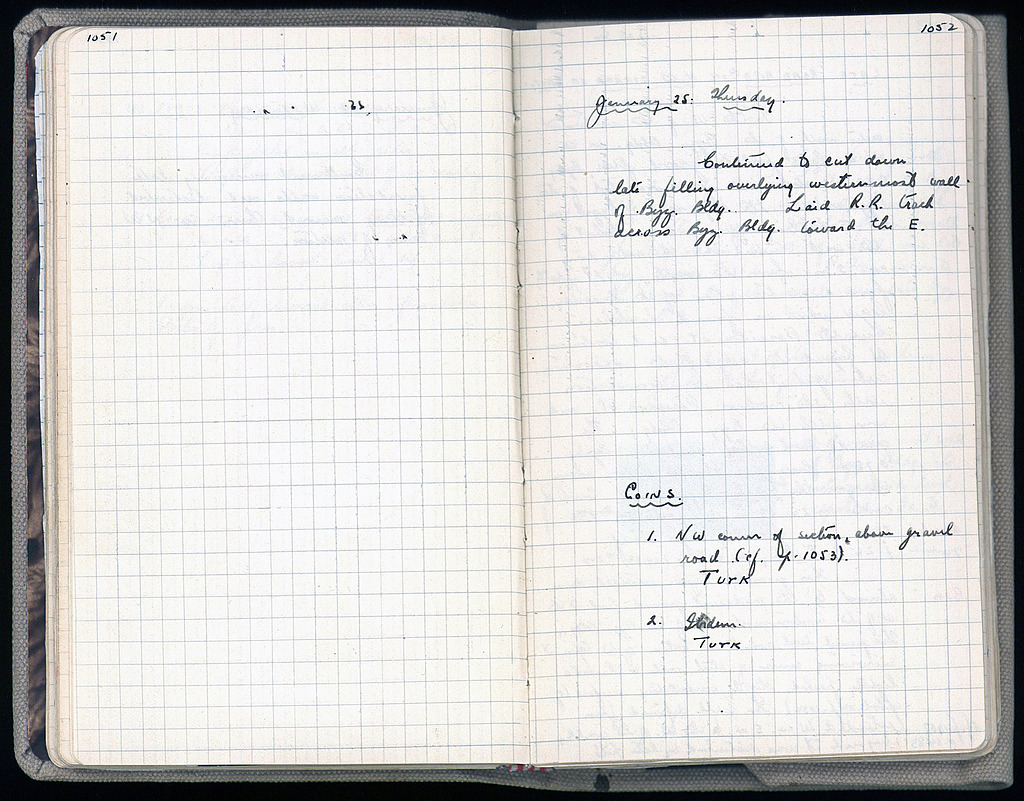 1051
1052
January 25: Thursday.
Continued to cut down
late filling overlying westernmost wall
of Byz. Bldg. Laid R.R. track
across Byz. Bldg. toward the E.
COINS.
1. NW corner of section, above gravel
road (cf. p. 1053).
TURK
2. Ibidem.
TURK